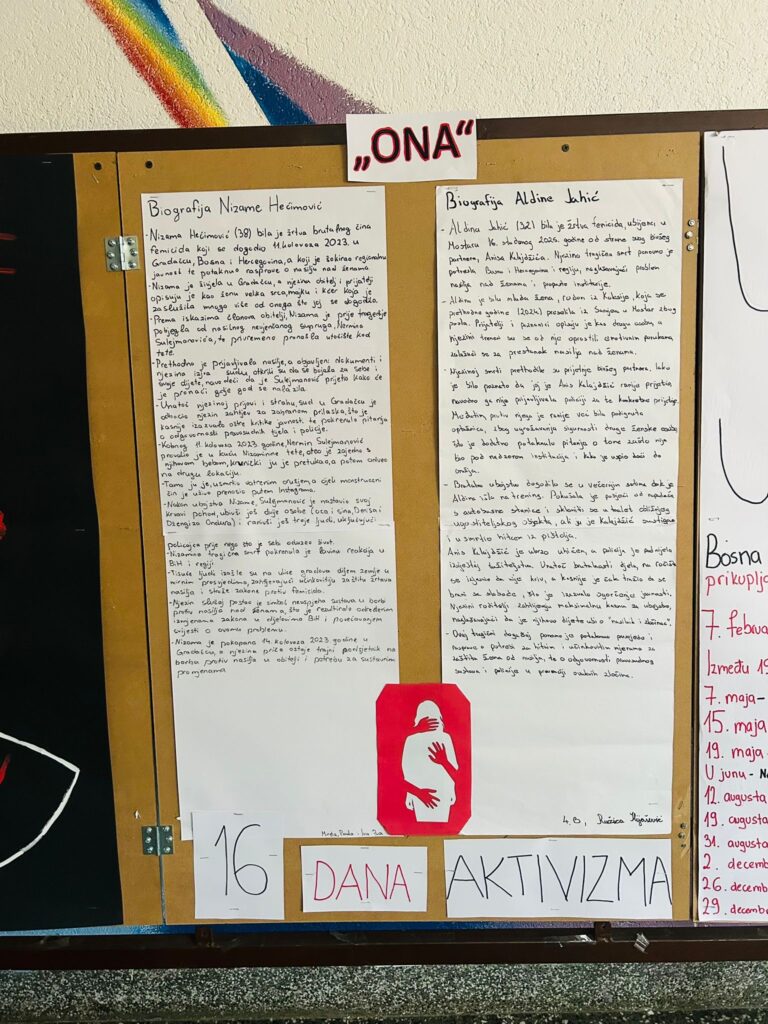 „ONA“
Biografija Nizame Hećimović
- Nizama Hećimović (38) bila je žrtva brutalnog čina
femicida koji se dogodio 11. kolovoza 2023. u
Gradačcu, Bosna i Hercegovina, a koji je šokirao regionalnu
javnost te potaknuo rasprave o nasilju nad ženama
- Nizama je živjela u Gradačcu, a njezina obitelj i prijatelji
opisuju je kao ženu velika srca, majku i kćer koja je
zaslužila mnogo više od onoga što joj se dogodilo.
- Prema iskazima članova obitelji, Nizama je prije tragedije
pobjegla od nasilnog nevjenčanog supruga, Nermina
Sulejmanovića, te privremeno pronašla utočište kod
tete.
- Prethodno je prijavljivala nasilje, a objavljeni dokumenti i
njezina izjava sudu, otkrili su da se bojala za sebe i
svoje dijete, navodeći da je Sulejmanović prijetio kako će
je pronaći gdje god se nalazila
- Unatoč njezinoj prijavi i strahu, sud u Gradačcu je
odbacio njezin zahtjev za zabranom prilaska, što je
kasnije izazvalo oštre kritike javnosti te pokrenulo pitanja
o odgovornosti pravosudnih tijela i policije.
- Kobnog 11. kolovoza 2023. godine, Nermin Sulejmanović
provalio je u kuću Nizamine tete, oteo je zajedno s
njihovom bebom, krvnički ju je pretukao, a potom odveo
na drugu lokaciju.
- Tamo ju je usmrtio vatrenim oružjem, a cijeli monstruozni
čin je uživo prenosio putem Instagrama.
- Nakon ubojstva Nizame, Sulejmanović je nastavio svoj
krvavi pohod, ubivši još dvije osobe (oca i sina, Denisa i
Džengiza Ondera) i ranivši još troje ljudi, uključujući
policajca prije nego što je sebi oduzeo život.
- Nizamina tragična smrt pokrenula je lavinu reakcija u
BiH i regiji.
- Tisuće ljudi izašle su na ulice gradova diljem zemlje u
mirnim prosvjedima, zahtijevajući učinkovitiju zaštitu žrtava
nasilja i strože zakone protiv femicida.
- Njezin slučaj postao je simbol neuspjeha sustava u borbi
protiv nasilja nad ženama, što je rezultiralo određenim
izmjenama zakona u dijelovima BiH i povećavanjem
svijesti o ovome problemu.
- Nizama je pokopana 14. kolovoza 2023. godine u
Gradačcu, a njezina priča ostaje trajni podsjetnik na
borbu protiv nasilja u obitelji i potrebu za sustavnim
promjenama
Biografija Aldine Jahić
- Aldina Jahić (32) bila je žrtva femicida, ubijena u
Mostaru 16. studenog 2025. godine od strane svog bivšeg
partnera, Anisa Kalajdžića. Njezina tragična smrt ponovno je
potresla Bosnu i Hercegovinu i regiju, naglašavajući problem
nasilja nad ženama i propuste institucija.
- Aldina je bila mlada žena, rodom iz Kaknja, koja se
prethodne godine (2024) preselila iz Sarajeva u Mostar zbog
posla. Prijatelji i poznanici opisuju je kao dragu osobu, a
njezini treneri su se od nje oprostili emotivnim porukama,
zalažući se za prestanak nasilja nad ženama.
- Njezinoj smrti prethodile su prijetnje bivšeg partnera. Iako
je bilo poznato da joj je Anis Kalajdžić ranije prijetio,
navodno ga nije prijavljivala policiji za te konkretne prijetnje.
Međutim, protiv njega je ranije već bila podignuta
optužnica, zbog ugrožavanja sigurnosti druge ženske osobe,
što je dodatno potaknulo pitanja o tome zašto nije
bio pod nadzorom institucija i kako je uspio doći do
oružja.
- Brutalno ubojstvo dogodilo se u večernjim satima dok je
Aldina išla na trening. Pokušala je pobjeći od napadača
s autobusne stanice i skloniti se u toalet obližnjeg
ugostiteljskog objekta, ali ju je Kalajdžić sustigao
i usmrtio hitcem iz pištolja.
Anis Kalajdžić je ubrzo uhićen, a policija je podnijela
izvještaj tužiteljstvu. Unatoč brutalnosti djela, na ročištu
se izjasnio da nije kriv, a kasnije je čak tražio da se
brani sa slobode, što je izazvalo ogorčenje javnosti.
Njezini roditelji zahtijevaju maksimalnu kaznu za ubojstvo,
naglašavajući da je njihovo dijete ubio "manijak i zločinac".
- Ovaj tragični događaj ponovno je potaknuo prosvjede i
rasprave o potrebi za hitnim i učinkovitijim mjerama za
zaštitu žena od nasilja, te o odgovornosti pravosudnog
sustava i policije u prevenciji ovakvih zločina.
4.B, Ružica
16
DANA
AKTIVIZMA
Bosna
prikuplja
7. februa
Između 19
7. maja-
15. maja
19. maja-
U junu- N
12. augusta
19. augusta
31. augusta
2. decemb
26. decemb
29. decemb